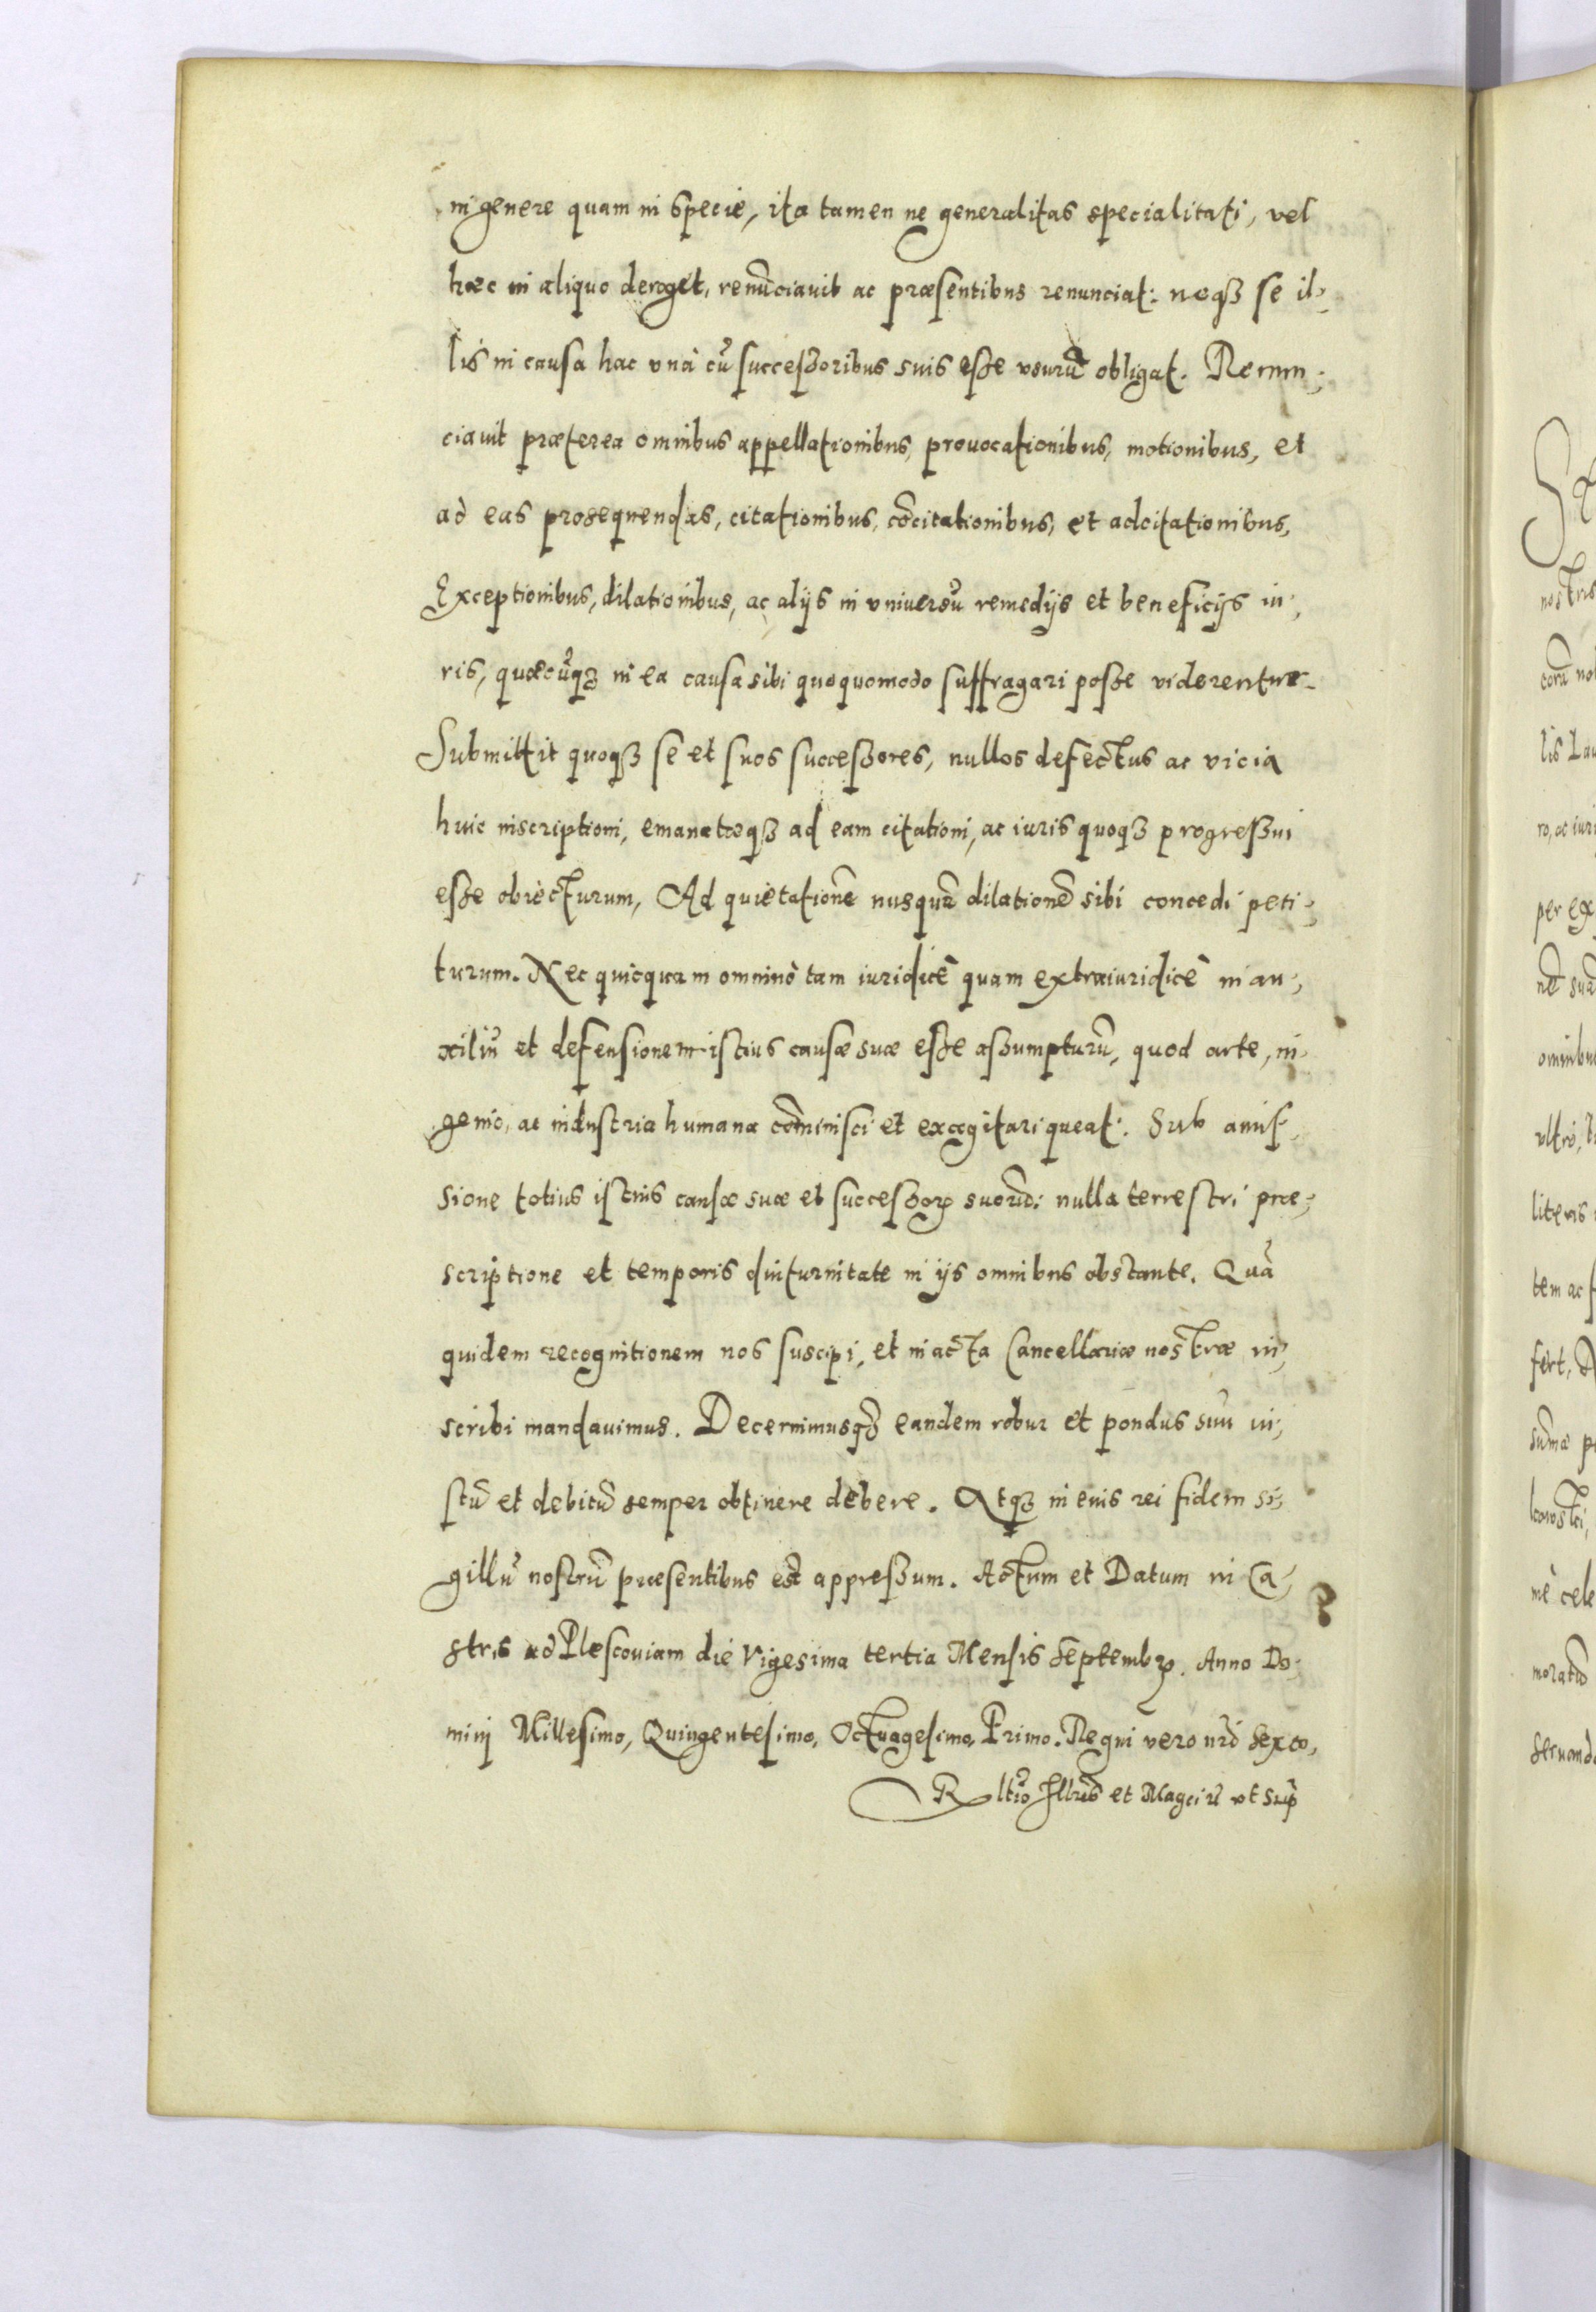 in genere quam in specie, ita tamen ne generalitas specialitati, vel
hæc in aliquo deroget, renũciauit ac præsentibus renunciat: neqꝫ se il-
lis in causa hac vnà cũ successoribus suis esse vsurũ obligat. Renun-
ciauit præterea omnibus appellationibus, prouocationibus, motionibus, et
ad eas prosequendas, citationibus, cõcitationibus, et adcitationibus,
Exceptionibus, dilationibus, ac alijs in vniuersũ remedijs et beneficijs iu-
ris, quæcũqꝫ in ea causa sibi quoquomodo suffragari posse viderentur.
Submittit quoqꝫ se et suos successores, nullos defectus ac vicia
huic inscriptioni, emanatæqꝫ ad eam citationi, ac iuris quoqꝫ progressui
esse obiecturum, Ad quietationẽ nusquã dilationẽ sibi concedi peti-
turum. Nec quicquam omninò tam iuridicè quam extraiuridicè in au-
xiliũ et defensionem istius causæ suæ esse assumpturũ, quod arte, in-
genio, ac industria humana cõminisci et excogitari queat. Sub amis-
sione totius istius causæ suæ et successorꝝ suorũ: nulla terrestri præ-
scriptione et temporis diuturnitate in ijs omnibus obstante. Quã
quidem recognitionem nos suscipi, et in acta Cancellariæ nostræ in-
scribi mandauimus. Decernimusqꝫ eandem robur et pondus suũ iu-
stũ et debitũ semper obtinere debere. Atqꝫ in euis rei fidem si-
gillũ nostrũ præsentibus est appressum. Actum et Datum in Ca-
stris ad Plescouiam die Vigesima tertia Mensis Septembꝝ. Anno Do-
mini Millesimo, Quingentesimo, Octuagesimo, Primo. Regni vero nrĩ sexto,
Rltio Illris et Magci vt sup